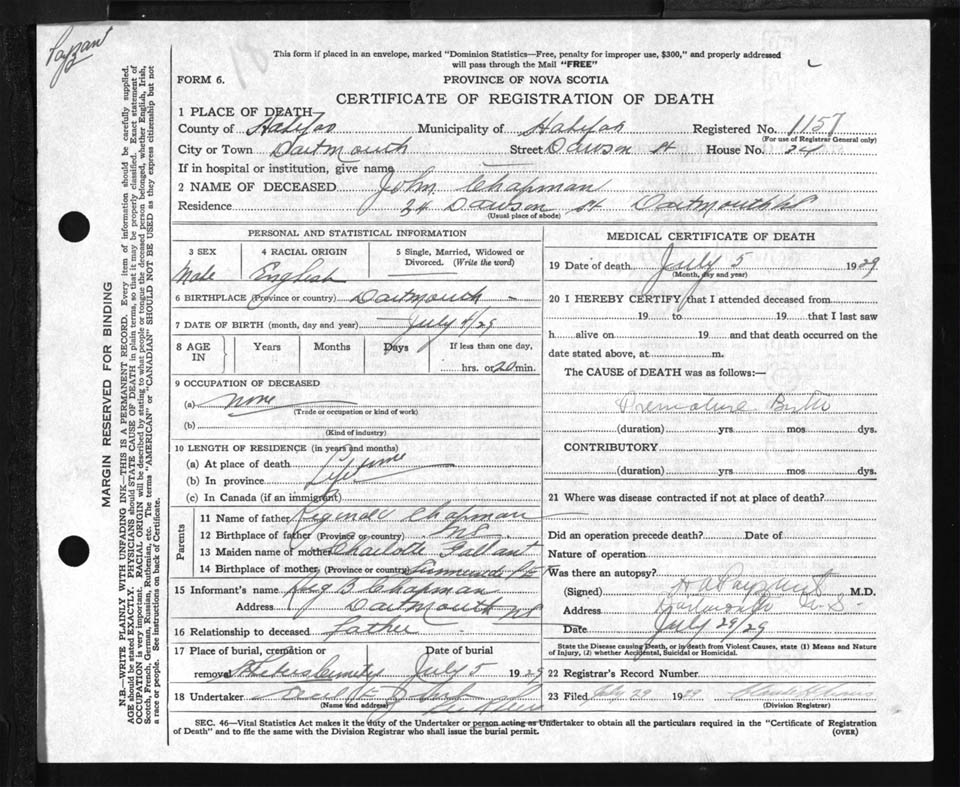 Payzant
This form if placed in an envelope, marked "Dominion Statistics—Free, penalty for improper use, $300," and properly addressed
will pass through the Mail "FREE"
FORM 6.
PROVINCE OF NOVA SCOTIA
CERTIFICATE OF REGISTRATION OF DEATH
MARGIN RESERVED FOR BINDING
N.B.—WRITE PLAINLY WITH UNFADING INK—THIS IS A PERMANENT RECORD. Every item of information should be carefully supplied.
AGE should be stated EXACTLY. PHYSICIANS should STATE CAUSE OF DEATH in plain terms, so that it may be properly classified. Exact statement of
OCCUPATION is very important. RACIAL ORIGIN will be described by stating to what people or tongue the deceased person belonged, whether English, Irish,
Scotch, French, German, Russian, Ruthenian, etc. The terms "AMERICAN" or "CANADIAN" SHOULD NOT BE USED as they express citizenship but not
a race or people. See instructions on back of Certificate.
1 PLACE OF DEATH—
County of Halifax Municipality of Halifax Registered No. 1157
(For use of Registrar General only)
City or Town Dartmouth Street Dawson St House No. 24
If in hospital or institution, give name
2 NAME OF DECEASED John Chapman
Residence 34 Dawson St Dartmouth NS
(Usual place of abode)
PERSONAL AND STATISTICAL INFORMATION
3 SEX 4 RACIAL ORIGIN 5 Single, Married, Widowed or
Divorced. (Write the word)
Male English
6 BIRTHPLACE (Province or country) Dartmouth
7 DATE OF BIRTH (month, day and year) July 4/29
8 AGE IN Years Months Days If less than one day,
hrs. or 20 min.
9 OCCUPATION OF DECEASED
(a) none
(Trade or occupation or kind of work)
(b)
(Kind of industry)
10 LENGTH OF RESIDENCE (in years and months)
(a) At place of death
(b) In province Life time
(c) In Canada (if an immigrant)
Parents
11 Name of father Reginald Chapman
12 Birthplace of father (Province or country) NS
13 Maiden name of mother Charlotte Gallant
14 Birthplace of mother (Province or country) Summerside PEI
15 Informant's name Reg B Chapman
Address Dartmouth NS
16 Relationship to deceased father
17 Place of burial, cremation or
removal St Peters Cemetery July 5 1929
18 Undertaker
(Name and address)
MEDICAL CERTIFICATE OF DEATH
19 Date of death July 5 1929
(Month, day and year)
20 I HEREBY CERTIFY that I attended deceased from
19 to 19 that I last saw
h alive on 19 and that death occurred on the
date stated above, at m.
The CAUSE of DEATH was as follows:—
Premature Birth
(duration) yrs mos dys.
CONTRIBUTORY
(duration) yrs mos dys.
21 Where was disease contracted if not at place of death?
Did an operation precede death? Date of
Nature of operation
Was there an autopsy?
(Signed) H A Payzant M.D.
Address Dartmouth N.S.
Date July 29/29
State the Disease causing Death, or in death from Violent Causes, state (1) Means and Nature
of Injury, (2) whether Accidental, Suicidal or Homicidal.
22 Registrar's Record Number
23 Filed July 29 1929
(Division Registrar)
SEC. 46—Vital Statistics Act makes it the duty of the Undertaker or person acting as Undertaker to obtain all the particulars required in the "Certificate of Registration
of Death" and to file the same with the Division Registrar who shall issue the burial permit.
(OVER)